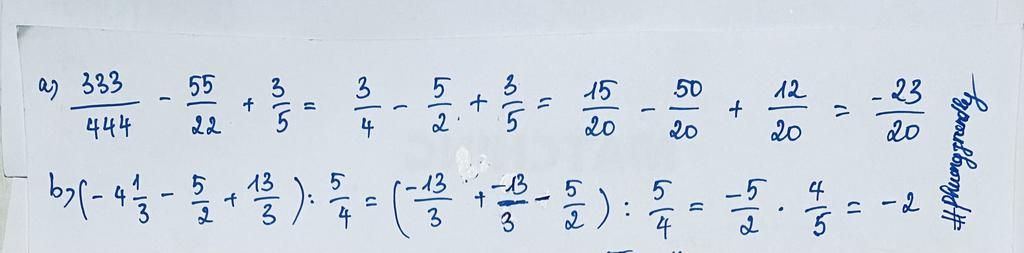 a) 333/444 - 55/22 + 3/5 = 3/4 - 5/2 + 3/5 = 15/20 - 50/20 + 12/20 = -23/20
b) (-4 1/3 - 5/2 + 13/3) : 5/4 = (-13/3 + -13/3 - 5/2) : 5/4 = -5/2 . 4/5 = -2